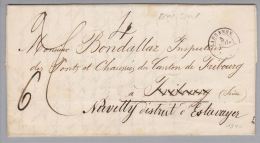 2
4
LAUSANNE
Monsieur Bondallaz Inspecteur
des Ponts et Chaussées du Canton de Fribourg
6
à Fribourg (Suisse)
Nuvilly district d'Estavayer